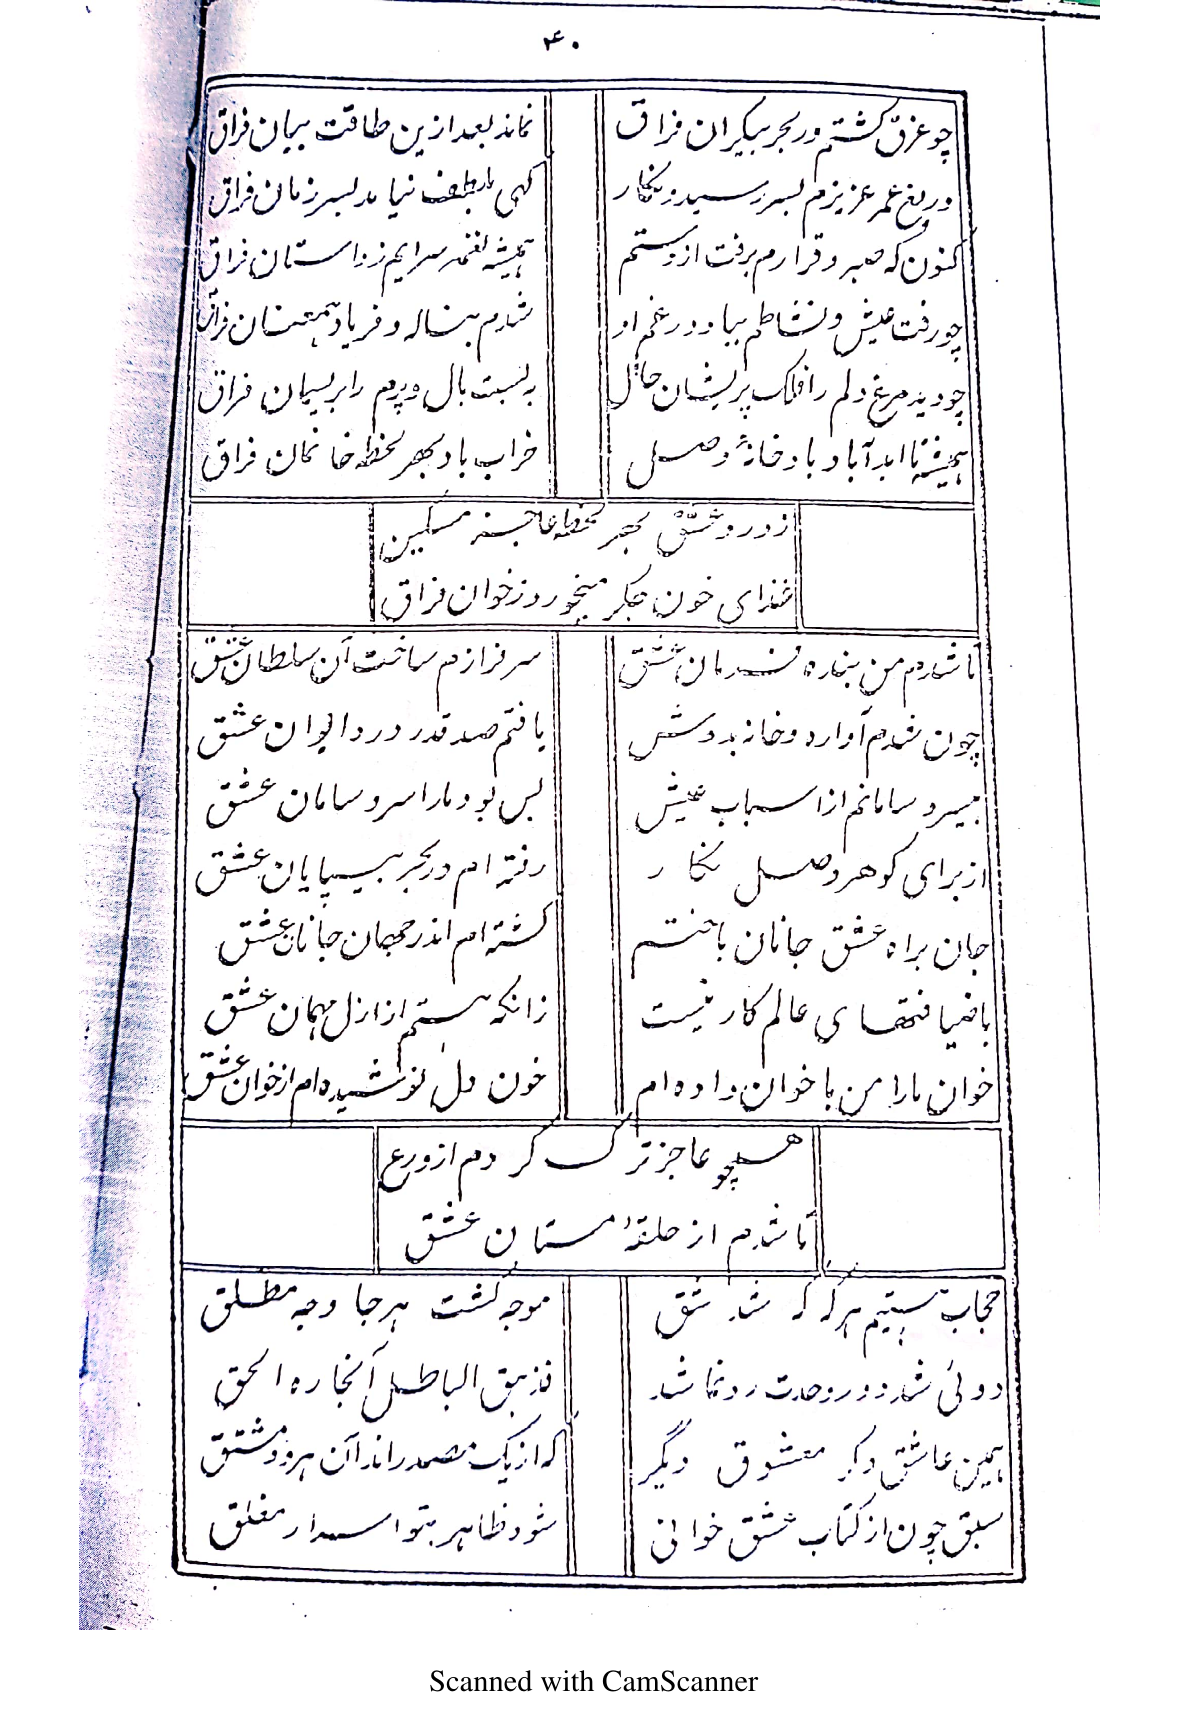 ۴۰
چو غرق گشتم در بحر بیکران فراق نماند بعد ازین طاقت بیان فراق
دریغ عمر عزیزم بسر رسید ز نگار گهی ز لطف نیامد بسر زمان فراق
کنون که صبر و قرارم برفت از دستم همیشه نغمه سرایم ز داستان فراق
چو رفت عیش و نشاطم بیاد در غم او شدم بناله و فریاد همعنان فراق
چو دید مرغ دلم را فلک پریشان حال به بست بال و پرم را بریسمان فراق
همیشه تا ابد آباد باد خانهٔ وصل خراب باد بهر لحظه خانمان فراق
ز درد عشق بهر لحظه عاجز مسکین
غذای خون جگر میخورد ز خوان فراق
تا شدم من بنده فرمان عشق سرفرازم ساخت آن سلطان عشق
چون شدم آواره و خانه بدوش یافتم صد قدر در دیوان عشق
بیسر و سامانم از اسباب عیش بس بود مارا سر و سامان عشق
از برای گوهر وصل نگار رفته ام در بحر بی پایان عشق
جان براه عشق جانان باختم گشته ام اندر جهان جانان عشق
با ضیافتهای عالم کار نیست زانکه هستم از ازل مهمان عشق
خوان مارا من با خوان داده ام خون دل نوشیده ام از خوان عشق
همچو عاجز ترک کردم از ورع
تا شدم از حلقهٔ مستان عشق
حجاب هستیم هرگه که شد شق موجه گشت هرجا وجه مطلق
دوئی شد دور وحدت رونما شد فزهق الباطل آنجا ره الحق
همین عاشق دگر معشوق دیگر که از یک مصدراند آن هر دو مشتق
سبق چون از کتاب عشق خوانی شود ظاهر بتو اسرار مغلق
Scanned with CamScanner